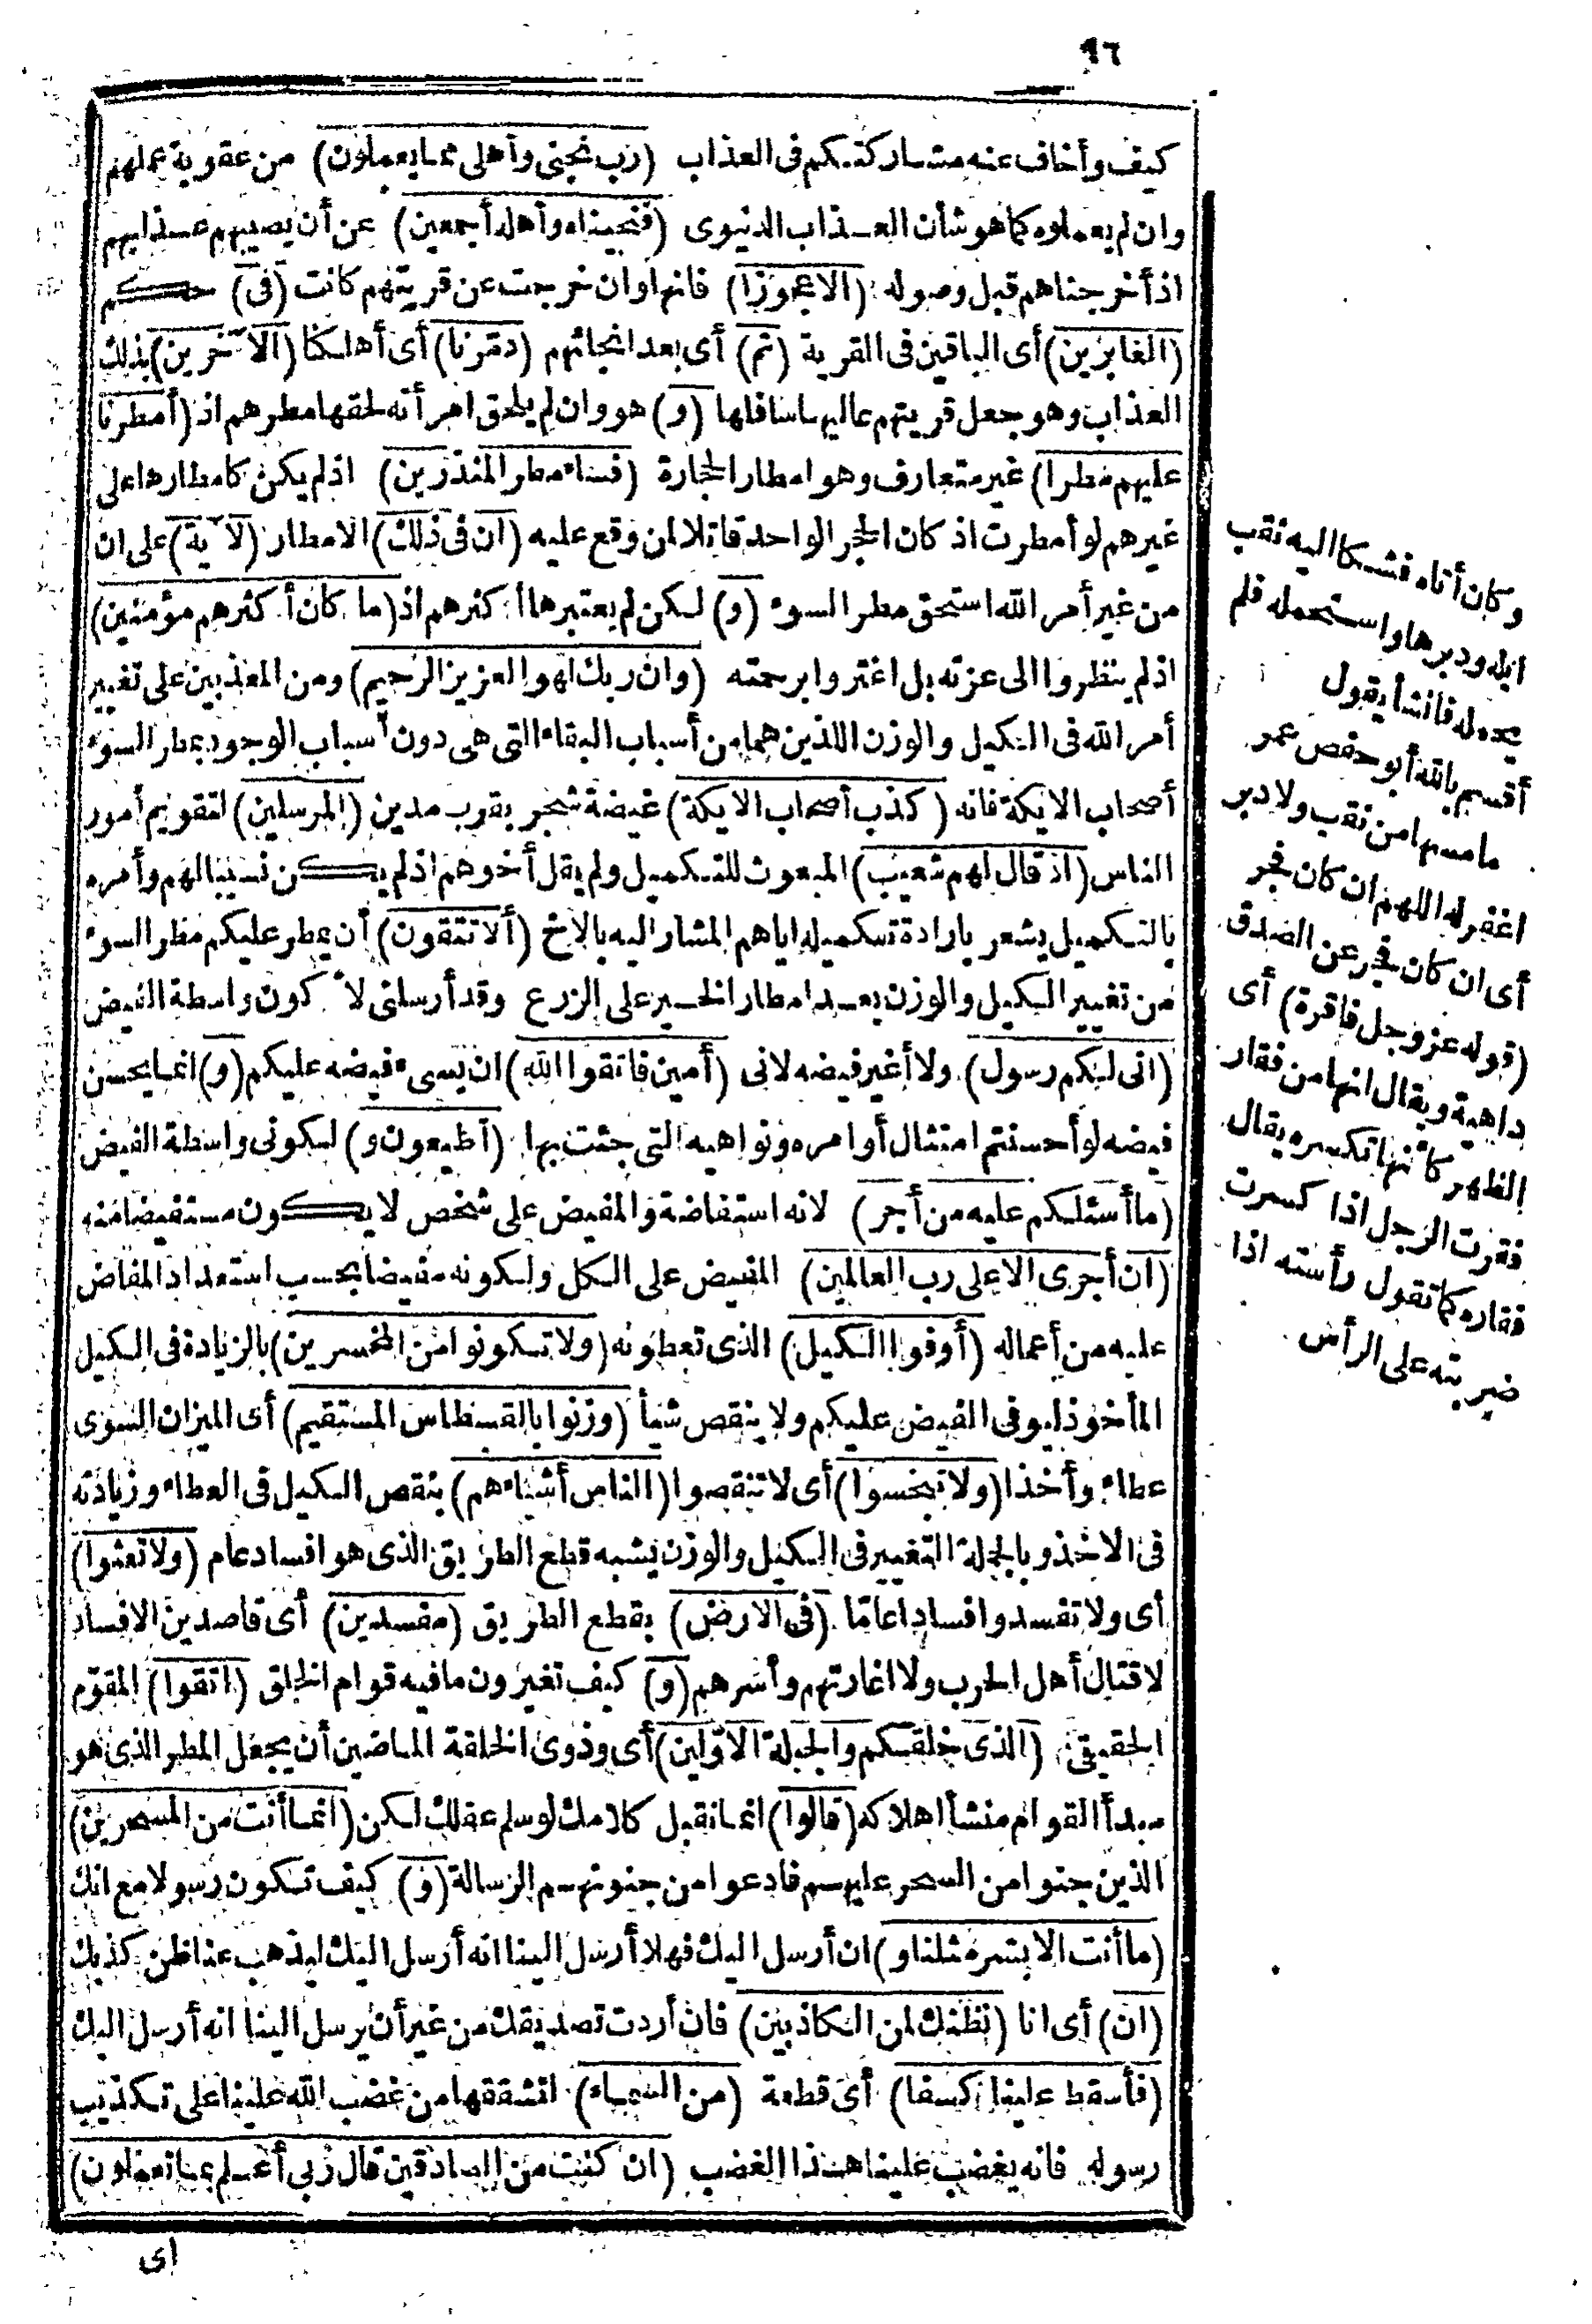 ٩٦
كيف وأخاف عنه مشاركتكم فى العذاب (رب نجنى وأهلى مما يعملون) من عقوبة عملهم
وان لم يعملوه كما هو شأن العذاب الدنيوى (فنجيناه وأهله أجمعين) عن أن يصيبهم عذابهم
اذ أخرجناهم قبل وصوله (الا عجوزا) فانها وان خرجت عن قريتهم كانت (فى) حكم
(الغابرين) أى الباقين فى القرية (ثم) أى بعد انجائهم (دمرنا) أى أهلكنا (الآخرين) بذلك
العذاب وهو جعل قريتهم عاليها سافلها (و) هو وان لم يلحق امرأته لحقها مطرهم اذ (أمطرنا
عليهم مطرا) غير متعارف وهو امطار الحجارة (فساء مطر المنذرين) اذ لم يكن كامطارها على
غيرهم لو أمطرت اذ كان الحجر الواحد قاتلا لمن وقع عليه (ان فى ذلك) الامطار (لآية) على ان
من غير أمر الله استحق مطر السوء (و) لكن لم يعتبرها أكثرهم اذ (ما كان أكثرهم مؤمنين)
اذ لم ينظروا الى عزته بل اغتروا برحمته (وان ربك لهو العزيز الرحيم) ومن المعذبين على تغيير
أمر الله فى الكيل والوزن اللذين هما من أسباب البقاء التى هى دون أسباب الوجود بمطر السوء
أصحاب الايكة فانه (كذب أصحاب الايكة) غيضة شجر بقرب مدين (المرسلين) لتقويم أمور
الناس (اذ قال لهم شعيب) المبعوث للتكميل ولم يقل أخوهم اذ لم يكن نسيبا لهم وأمره
بالتكميل يشعر بارادة تكميله اياهم المشار اليه بالاخ (ألا تتقون) أن يمطر عليكم مطر السوء
من تغيير الكيل والوزن بعد امطار الخير على الزرع وقد أرسلنى لأكون واسطة الفيض
(انى لكم رسول) ولا أغير فيضه لانى (أمين فاتقوا الله) ان يسىء فيضه عليكم (و) انما يحسن
فيضه لو أحسنتم امتثال أوامره ونواهيه التى جئت بها (أطيعون و) لكونى واسطة الفيض
(ما أسئلكم عليه من أجر) لانه استفاضة والمفيض على شخص لا يكون مستفيضا منه
(ان أجرى الا على رب العالمين) المفيض على الكل ولكونه مفيضا بحسب استعداد المفاض
عليه من أعماله (أوفوا الكيل) الذى تعطونه (ولا تكونوا من المخسرين) بالزيادة فى الكيل
المأخوذ ليوفى الفيض عليكم ولا ينقص شيأ (وزنوا بالقسطاس المستقيم) أى الميزان السوى
عطاء وأخذا (ولا تبخسوا) أى لا تنقصوا (الناس أشياءهم) بنقص الكيل فى العطاء وزيادته
فى الاخذ وبالجملة التغيير فى الكيل والوزن يشبه قطع الطريق الذى هو افساد عام (ولا تعثوا)
أى ولا تفسدوا افسادا عامّا (فى الارض) بقطع الطريق (مفسدين) أى قاصدين الافساد
لا قتال أهل الحرب ولا اغارتهم وأسرهم (و) كيف تغيرون ما فيه قوام الخلق (اتقوا) المقوّم
الحقيقى (الذى خلقكم والجبلة الاوّلين) أى وذوى الخلقة الماضين أن يجعل المطر الذى هو
مبدأ القوام منشأ اهلاكه (قالوا) انما نقبل كلامك لو سلم عقلك لكن (انما أنت من المسحرين)
الذين جنوا من السحر عليهم فادعوا من جنونهم الرسالة (و) كيف تكون رسولا مع انك
(ما أنت الا بشر مثلنا و) ان أرسل اليك فهلا أرسل الينا انه أرسل اليك ليذهب عنا ظن كذبك
(ان) أى انا (نظنك لمن الكاذبين) فان أردت تصديقك من غير أن يرسل الينا انه أرسل اليك
(فأسقط علينا كسفا) أى قطعة (من السماء) انشققها من غضب الله علينا على تكذيب
رسوله فانه يغضب علينا هذا الغضب (ان كنت من الصادقين قال ربى أعلم بما تعملون)
اى
وكان أتاه فشكا اليه نقب
ابله ودبرها واستحمله فلم
يحمله فانشأ يقول
أقسم بالله أبو حفص عمر
ما مسها من نقب ولا دبر
اغفر له اللهم ان كان فجر
أى ان كان فجر عن الصدق
(قوله عز وجل فاقرة) أى
داهية ويقال انها من فقار
الظهر كأنها تكسره يقال
فقرت الرجل اذا كسرت
فقاره كما تقول رأسته اذا
ضربته على الرأس